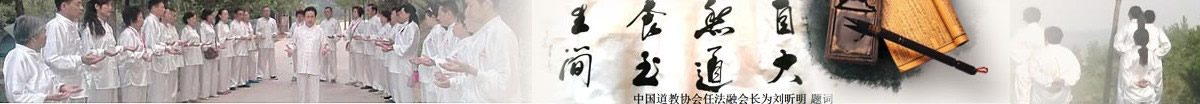 自然養生
大道至简
中国道教协会任法融会长为刘昕明 题词